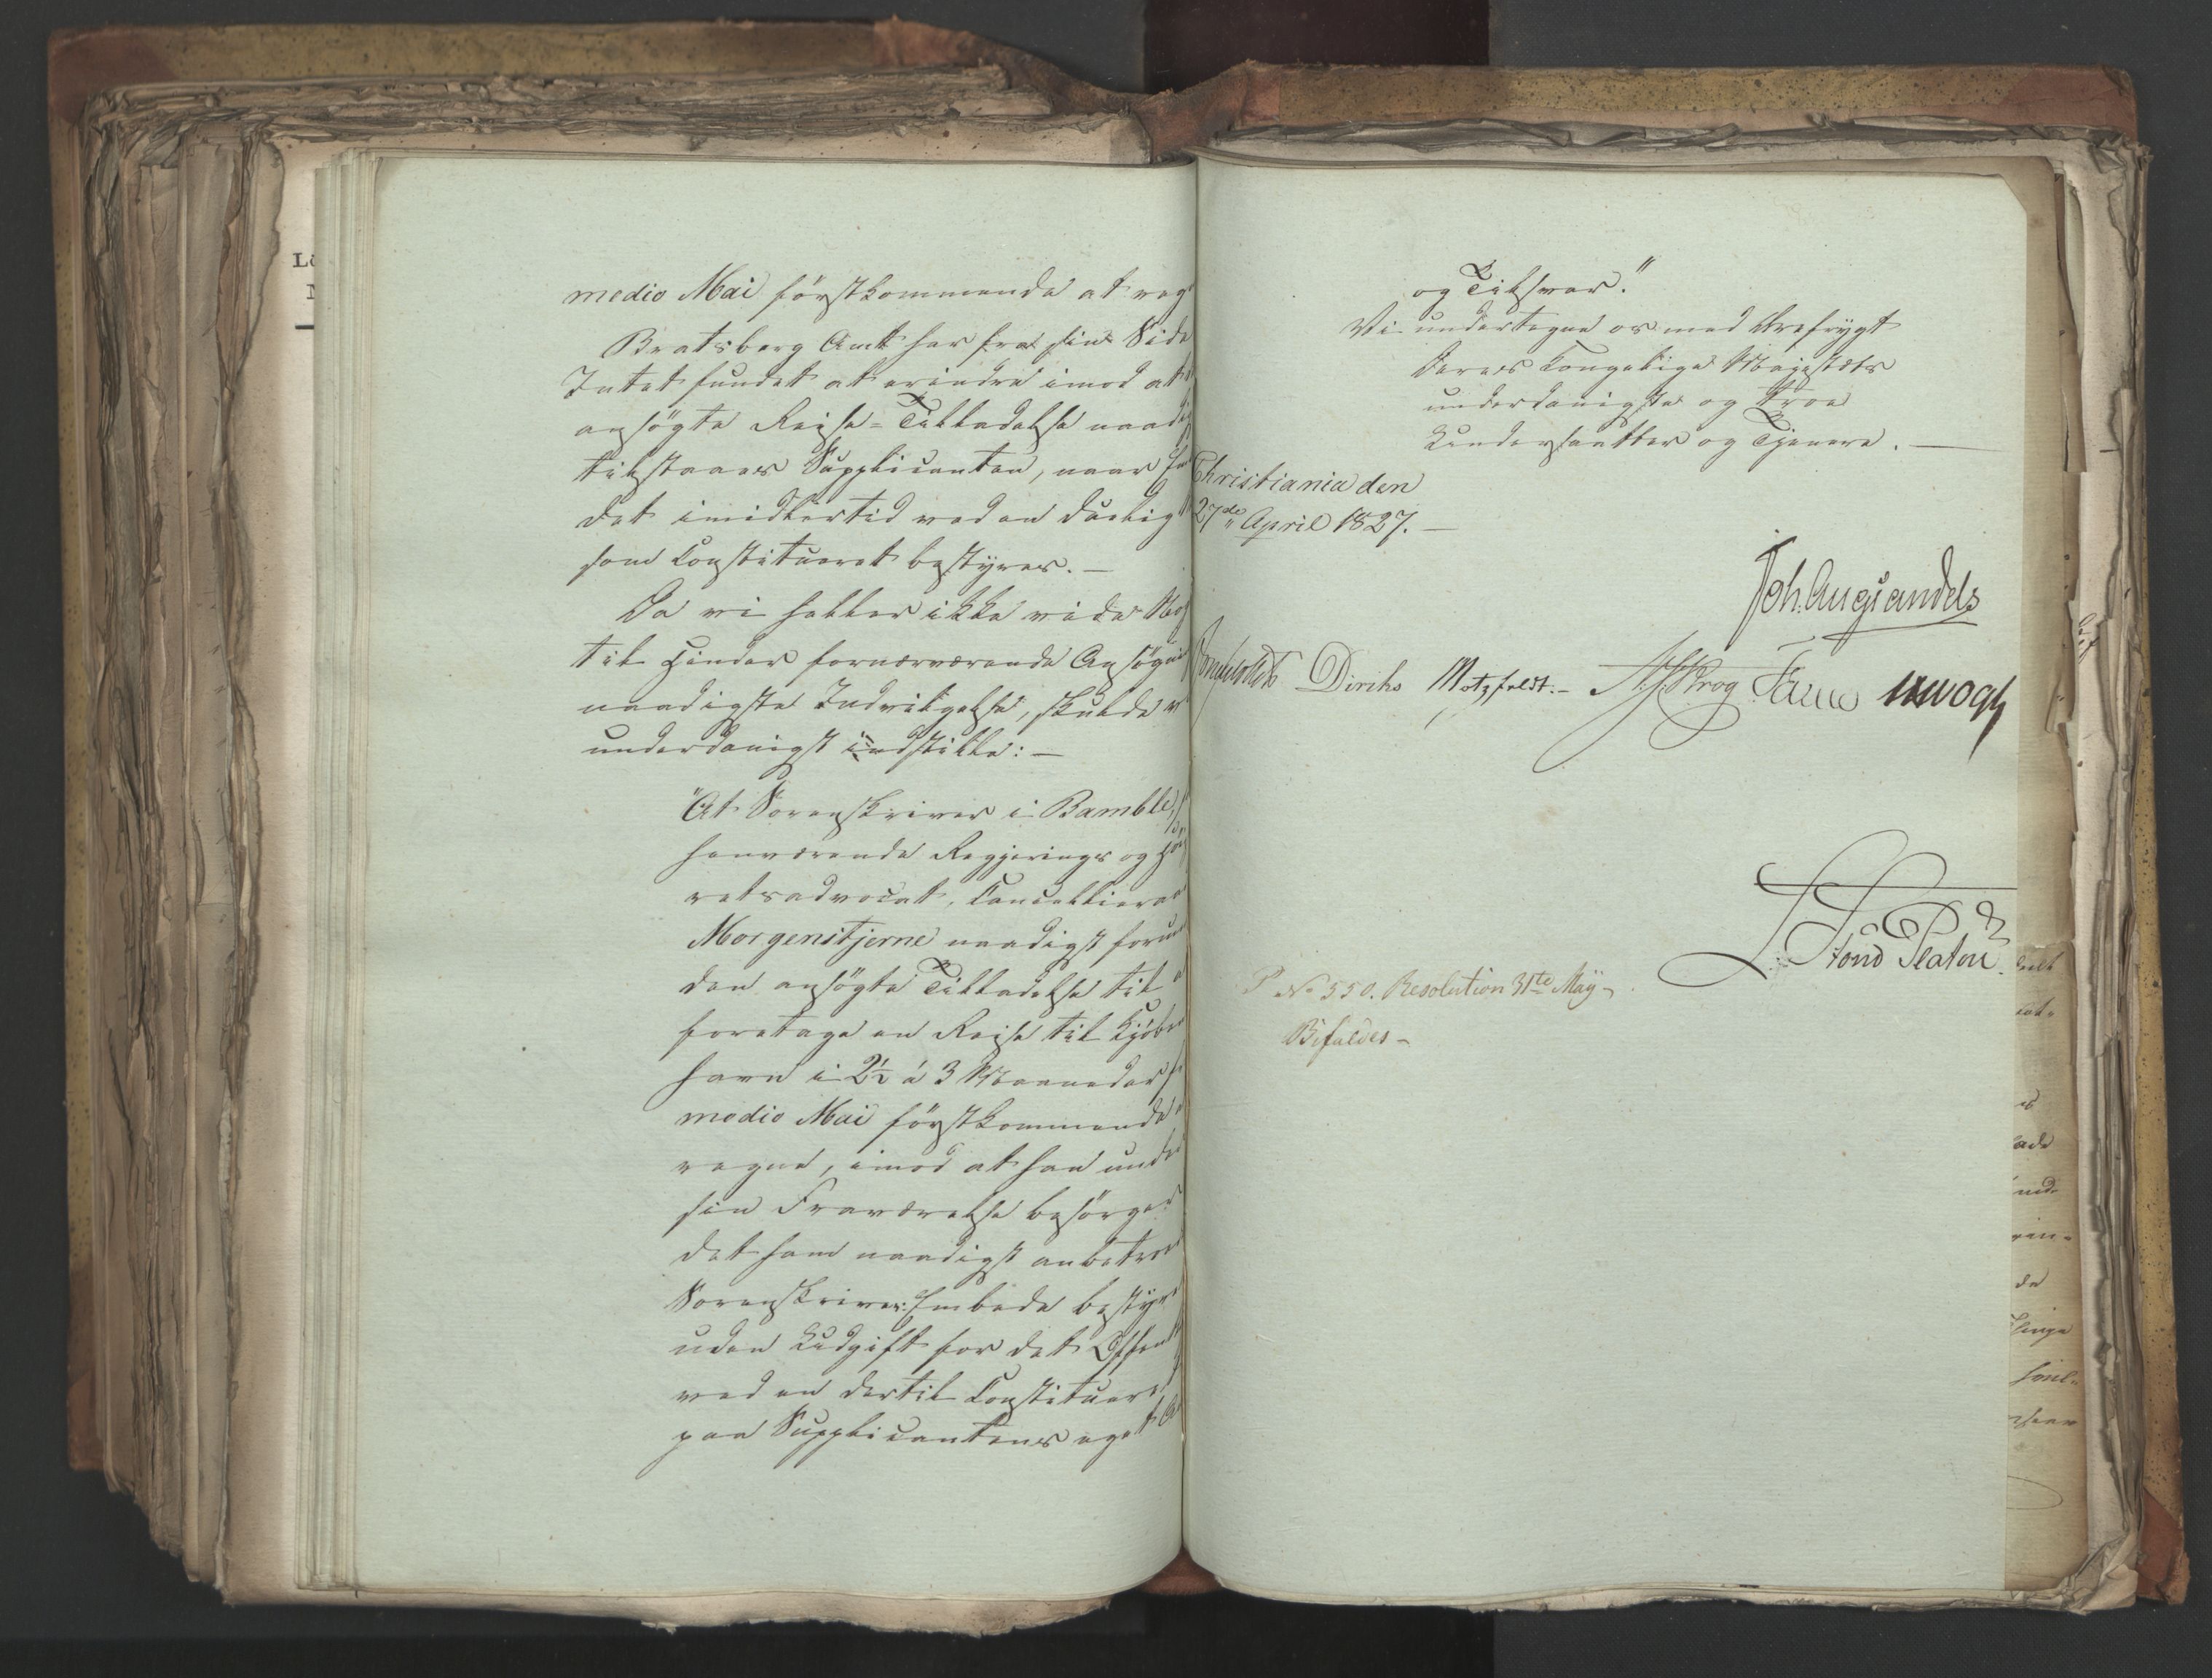 medio Mai förstkommende at reg
Bratsberg Amt har fra sin Side
Intet fundet at erindre imod at
ansögte Reise-Tilladelse naadi
tilstaaes Supplicanten, naar Em
det imidlertid ved en duelig
som Constitueret bestyres. —
Da vi heller ikke vide Nog
til Hinder for nærværende Ansögni
naadigste Indvilgelse, skulde v
underdanigst indstille: —
"At Sorenskriver i Bamble, f
henværende Regjerings og Höi
retsadvocat, Cancelliera
Morgenstjerne naadigst forun
den ansögte Tilladelse til
foretage en Reise til Kjöbe
havn i 2½ á 3 Maaneder f
medio Mai förstkommende
regne, imod at han unde
sin Fraværelse besörge
det ham naadigst anbetro
Sorenskriver-Embede bestyr
uden Udgift for det Offen
ved en dertil Constituere
paa Supplicantens eget A
og Tilsvar."
Vi undertegne os med Ærefrygt
Deres Kongelige Majestæts
underdanigste og troe
Undersaatter og Tjenere. —
Christiania den
27de April 1827. —
Joh. Aug. Sandels
Diriks Motzfeldt. Krog Fasting
L. v. Platen
No 550. Resolution 31te May
Bifaldes —